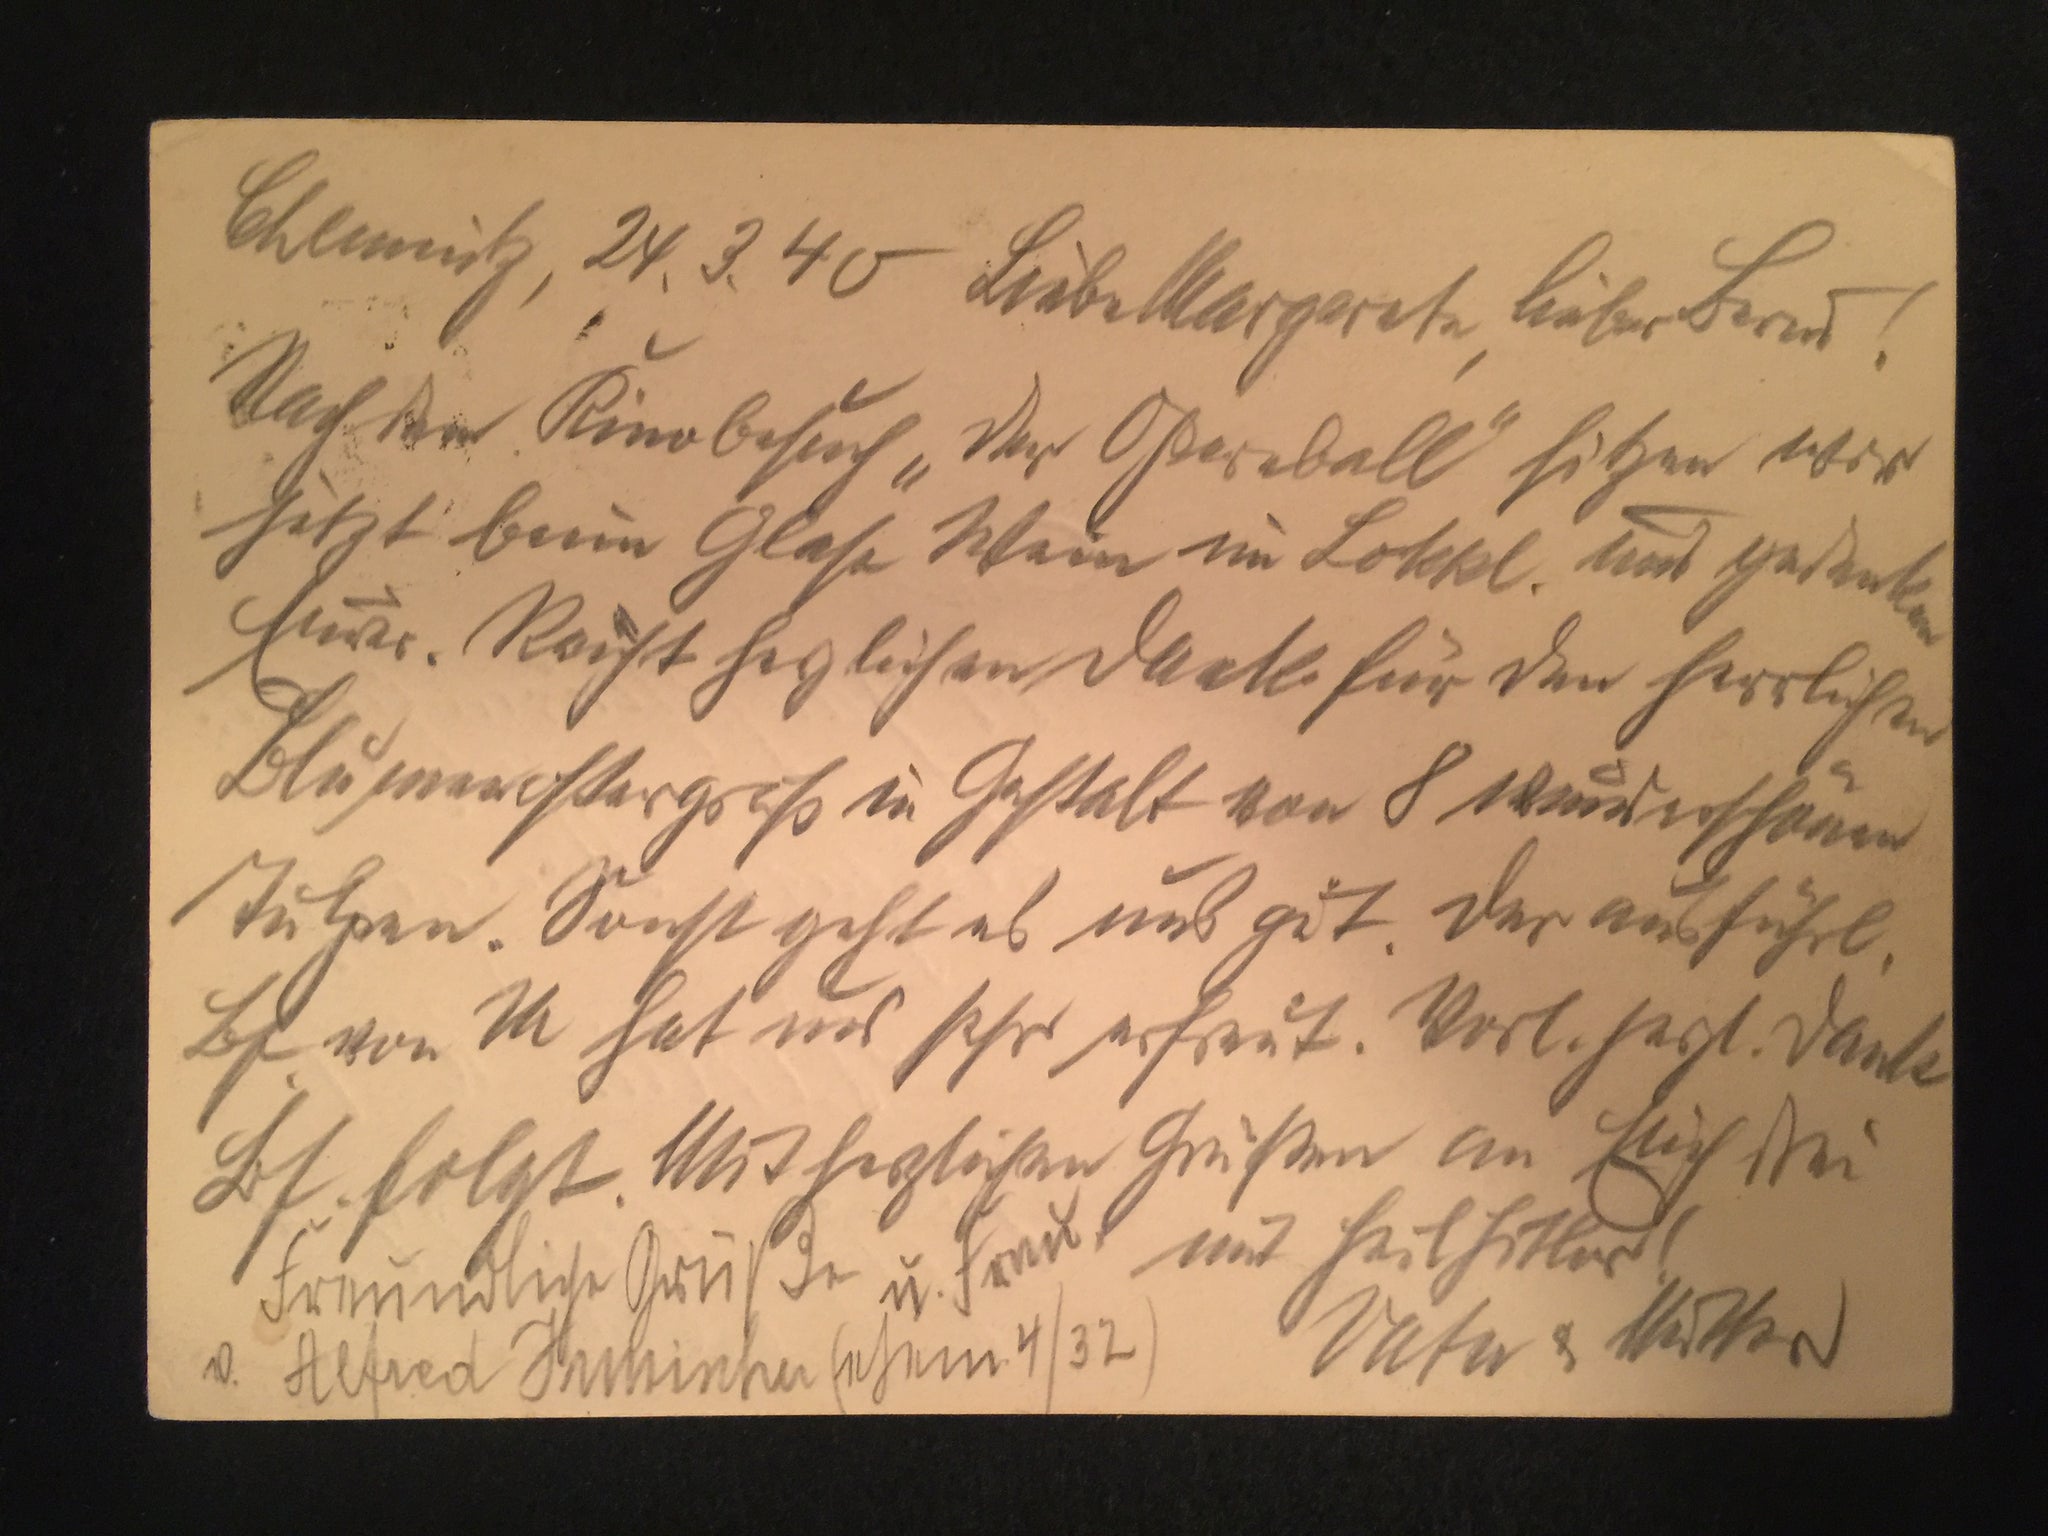 Chemnitz, 24.3.40 Liebe Margarete, lieber Bernd!
Nach dem Kinobesuch „Der Opernball“ sitzen wir
jetzt beim Glase Wein im Lokkl. und gedenken
Euer. Recht herzlichen Dank für den herrlichen
Blumenostergruß in Gestalt von 8 wunderschönen
Tulpen. Sonst geht es uns gut. Der ausführl.
Bf. von M hat uns sehr erfreut. Vorl. herzl. Dank
Bf. folgt. Mit herzlichen Grüßen an Euch drei
und Heil Hitler!
Freundliche Grüße u. Frau.
v. Alfred (ehem 4/32)
Vater & Mutter